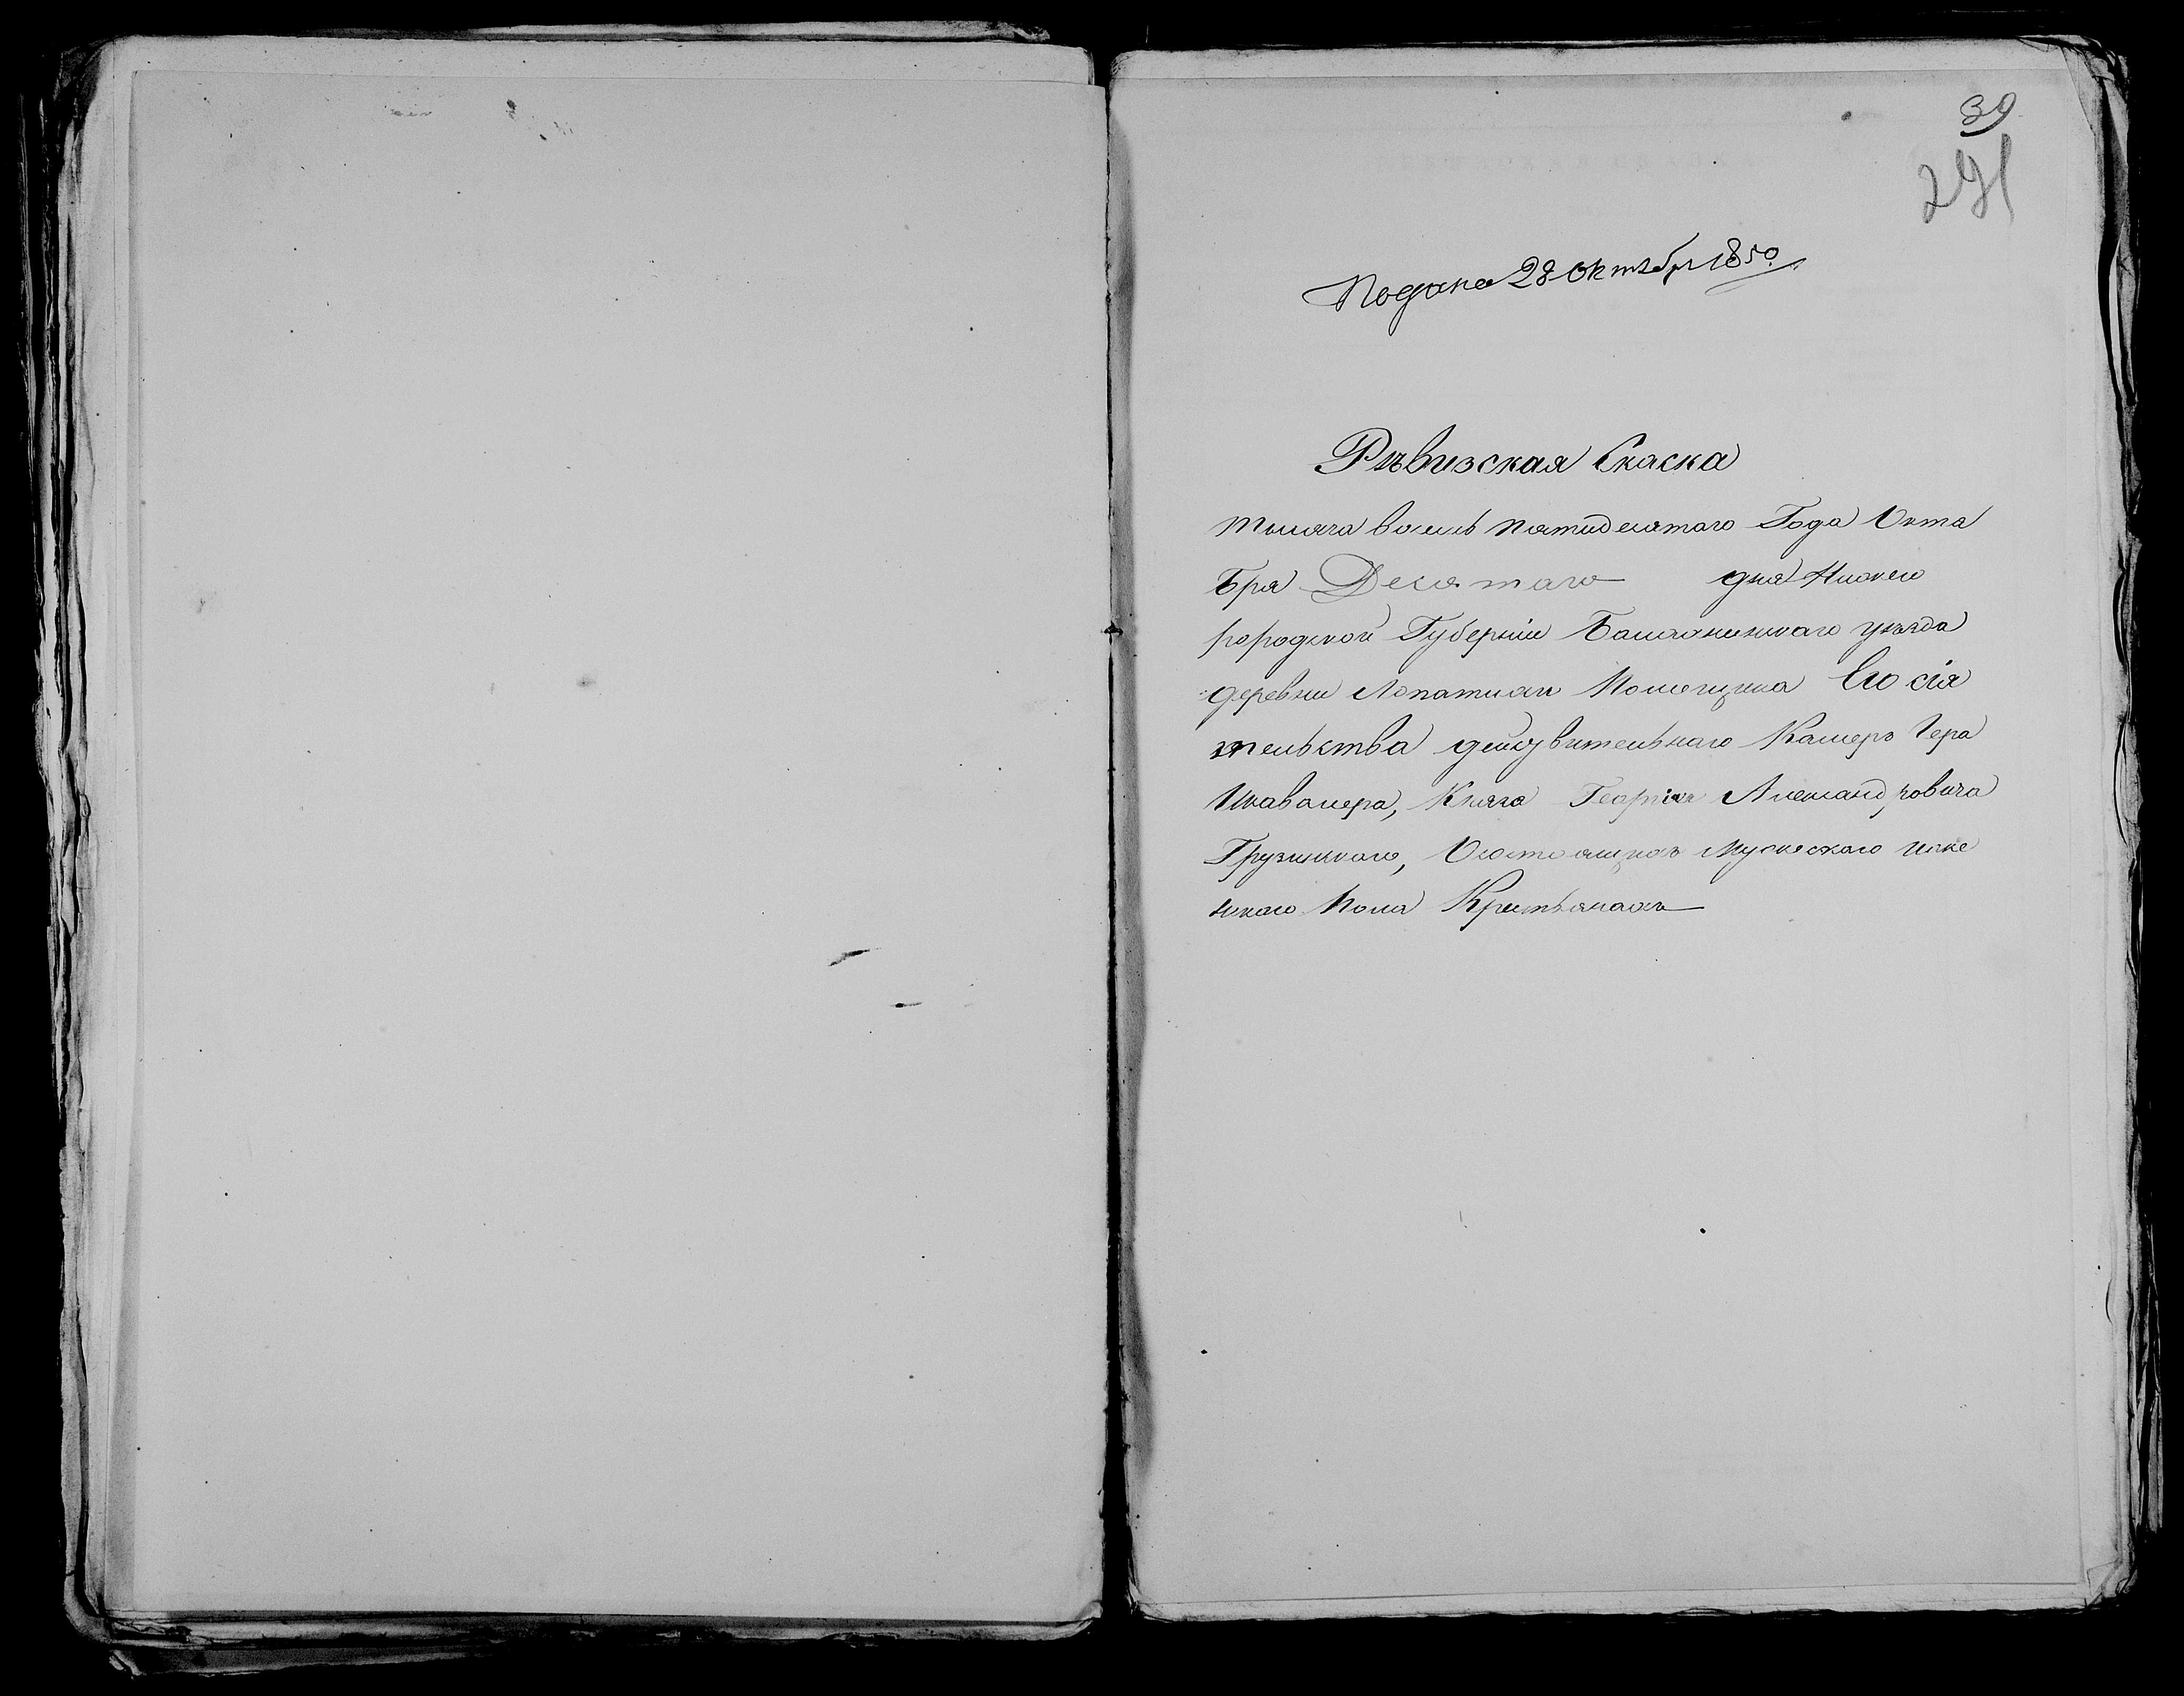 39
291
Подана 28 Октября 1850.
Ръвизская Скаска
тысяча восемь пятидесятаго Года Октя
бря Десятаго дня Нижего
родской Губерніи Балахнинскаго уѣзда
деревни Лопатихи Помещика Его сія
тельства действительнаго Камеръ Гера
Икавалера, Князя Георгія Александровича
Грузинскаго, Осостоящихъ мужескаго иже
нскаго Пола Крестьянахъ